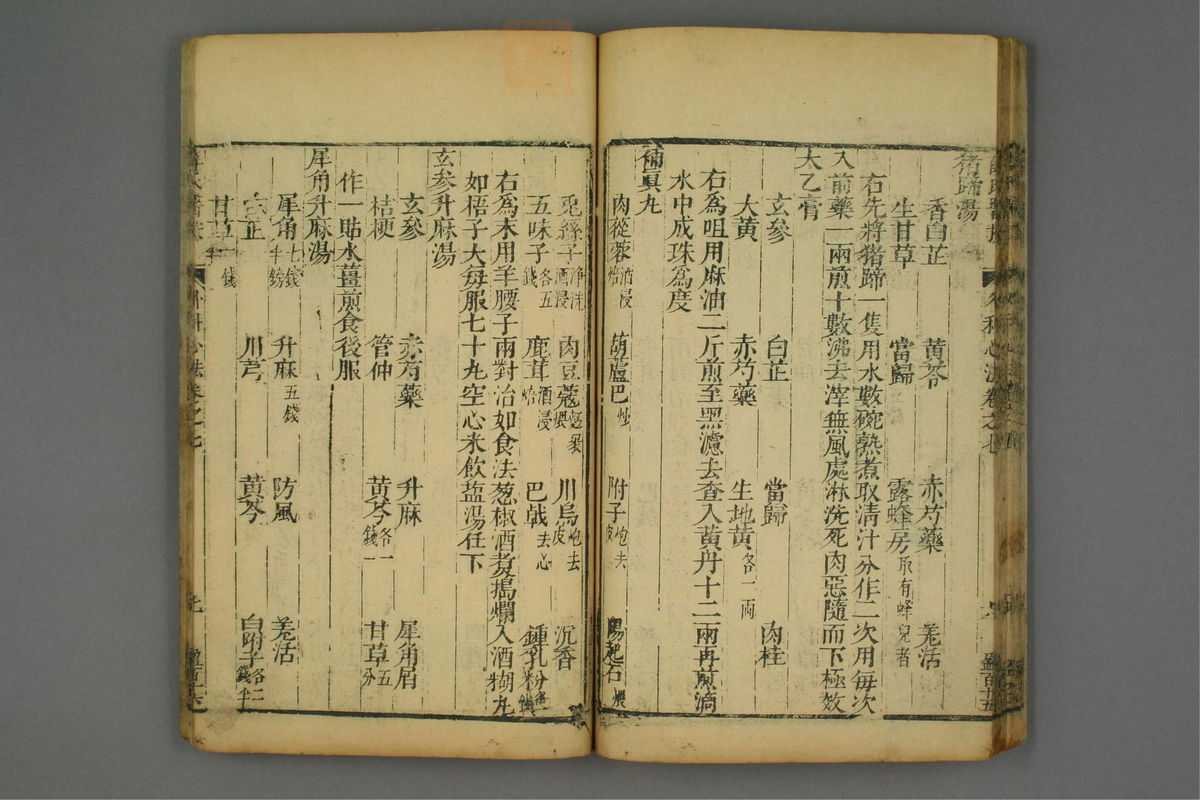 猪蹄湯
香白芷 黃芩 赤芍藥 羌活
生甘草 當歸 露蜂房取有蜂兒者
右先將猪蹄一隻用水數碗熟煮取清汁分作二次用每次
入前藥一兩煎十數沸去滓無風處淋洗死肉惡隨而下極效
太乙膏
玄參 白芷 當歸 肉桂
大黃 赤芍藥 生地黃各一兩
右為咀用麻油二斤煎至黑濾去查入黃丹十二兩再煎滴
水中成珠為度
補真丸
肉蓯蓉酒浸焙 胡蘆巴炒 附子炮去皮 陽起石煅
兎絲子淨洗酒浸 肉豆蔻麵裹煨 川烏炮去皮 沉香
五味子各五錢 鹿茸酒浸焙 巴戟去心 鍾乳粉各錢
右為末用羊腰子兩對治如食法葱椒酒煮搗爛入酒糊丸
如梧子大每服七十丸空心米飲塩湯任下
玄參升麻湯
玄參 赤芍藥 升麻 犀角屑
桔梗 管仲 黃芩各一錢 甘草五分
作一貼水薑煎食後服
犀角升麻湯
犀角七錢半鎊 升麻五錢 防風 羌活
白芷 川芎 黃芩 白附子各二錢半
甘草一錢半
外科心法卷之七